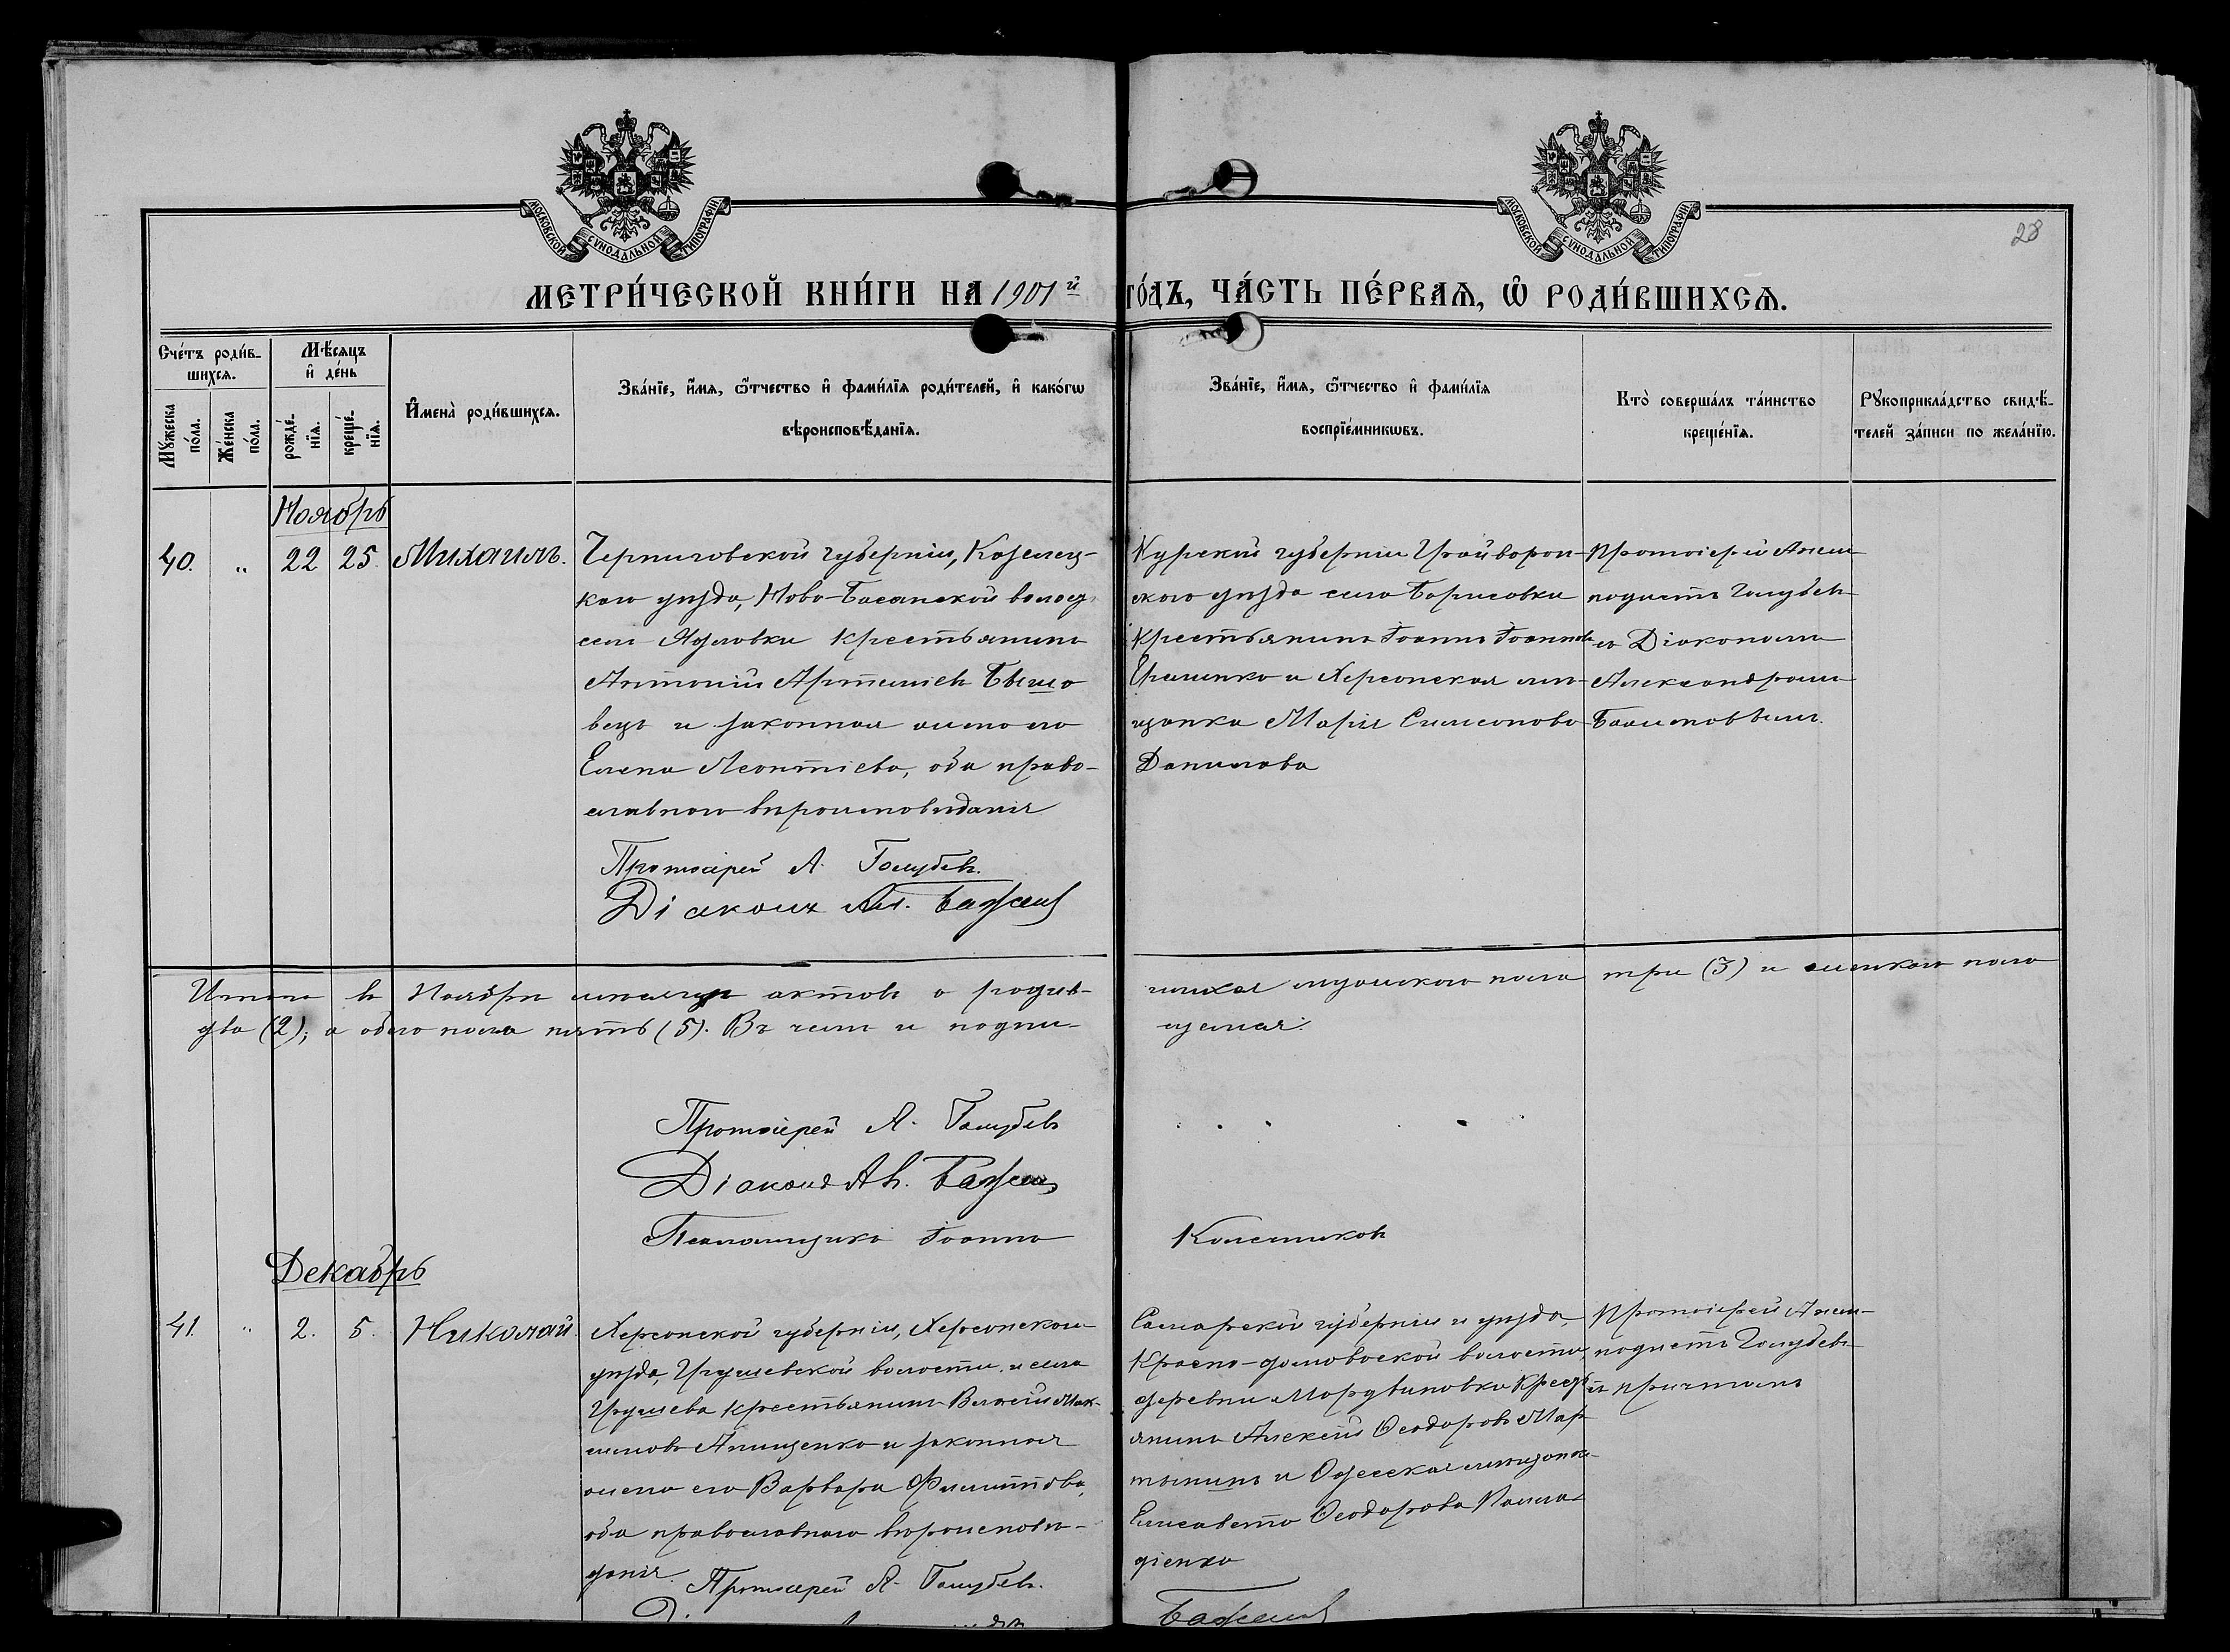 МОСКОВСКОЙ СѴНОДАЛЬНОЙ ТИПОГРАФІИ
МОСКОВСКОЙ СѴНОДАЛЬНОЙ ТИПОГРАФІИ
28
МЕТРИ́ЧЕСКОЙ КНИ́ГИ НА 1901й ГО́ДЪ, ЧА́СТЬ ПЕ́РВАѦ, Ѡ҆ РОДИ́ВШИХСѦ.
Сче́тъ роди́в-
шихсѧ.
Мꙋ́жеска
по́ла.
Же́нска
по́ла.
Мѣ́сѧцъ
и҆ де́нь
рожде́-
нїѧ.
креще́-
нїѧ.
И҆мена̀ роди́вшихсѧ.
Зва́нїе, и҆́мѧ, ѻ҆́тчество и҆ фами́лїѧ роди́телей, и҆ како́гѡ
вѣроисповѣ́данїѧ.
Зва́нїе, и҆́мѧ, ѻ҆́тчество и҆ фами́лїѧ
воспрїе́мникѡвъ.
Кто̀ соверша́лъ та́инство
креще́нїѧ.
Рꙋкоприкла́дство свидѣ́-
телей за́писи по жела́нїю.
Ноябрь
40. " 22 25. Михаилъ.
Черниговской губерніи, Козелец-
каго уѣзда, Ново-Басанской волос.
села Ядловки крестьянинъ
Антоній Артеміевъ Бышо
вецъ и законная жена его
Елена Леонтіева, оба право-
славнаго вѣроисповѣданія
Протоіерей А. Голубевъ.
Діаконъ Ал. Бажен
Курской губерніи Грайворон-
скаго уѣзда села Борисовки
крестьянинъ Іоаннъ Іоанновъ
и Херсонская мѣ-
щанка Марія Симеонова
Данилова
Протоіерей Анем-
подистъ Голубевъ
съ Діакономъ
Александромъ
Баженовымъ.
Итого въ Ноябрѣ мѣсяцѣ актовъ о родив-
шихся мужескаго пола три (3) и женскаго пола
два (2); а обоего пола пять (5). Въ чемъ и подпи-
суемся:
Протоіерей А. Голубевъ
Діаконъ Ал. Бажен
Псаломщикъ Іоаннъ Колесниковъ
Декабрь
41. " 2. 5. Николай.
Херсонской губерніи, Херсонскаго
уѣзда, Грушевской волости и села
Грушева крестьянинъ Василій Мак-
симовъ Анищенко и законная
жена его Варвара Филиппова,
оба православнаго вѣроисповѣ-
данія.
Протоіерей А. Голубевъ.
Самарской губерніи и уѣзда,
волости,
деревни Мордвиновки крест
янинъ Алексій Ѳеодоровъ Мар
тынинъ и Одесская мѣщанка
Елисавета Ѳеодорова Палла-
діенко
Бажен
Протоіерей Анем-
подистъ Голубевъ
съ причтомъ